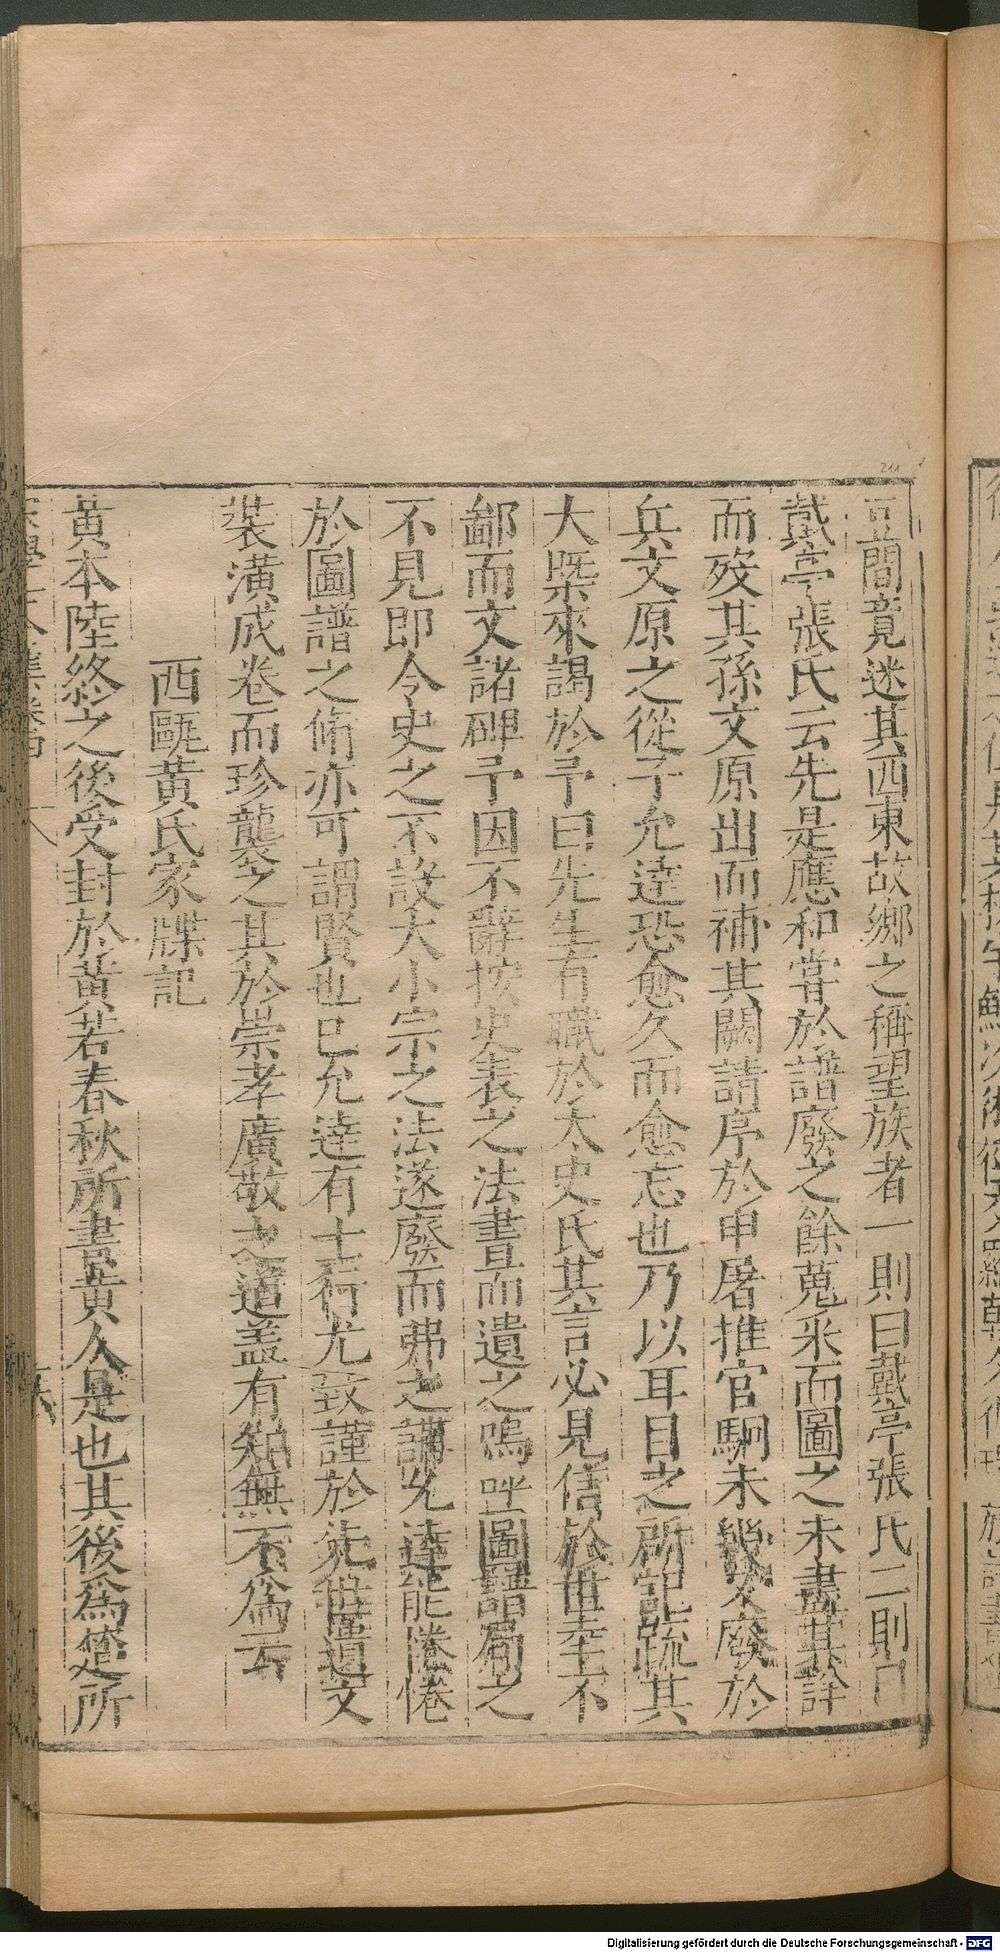 間竟迷其西東故鄉之稱望族者一則曰戴亭張氏二則曰
戴亭張氏云先是應和嘗於譜廢之餘蒐采而圖之未盡其詳
而歿其孫文原出而補其闕請序於申屠推官駉未幾又廢於
兵文原之從子允達恐愈久而愈忘也乃以耳目之所記疏其
大槩來謁於予曰先生有職於太史氏其言必見信於世幸不
鄙而文諸碑予因不辭按史表之法書而遺之嗚呼圖譜局之
不見即令史之不設大小宗之法遂廢而弗之講允達能惓惓
於圖譜之脩亦可謂賢也已允達有士行尤致謹於先世遺文
裝潢成卷而珍襲之其於崇孝廣敬之道盖有知無不爲云
西甌黃氏家牒記
黃本陸終之後受封於黃若春秋所書黃人是也其後爲楚所
211
Digitalisierung gefördert durch die Deutsche Forschungsgemeinschaft - DFG